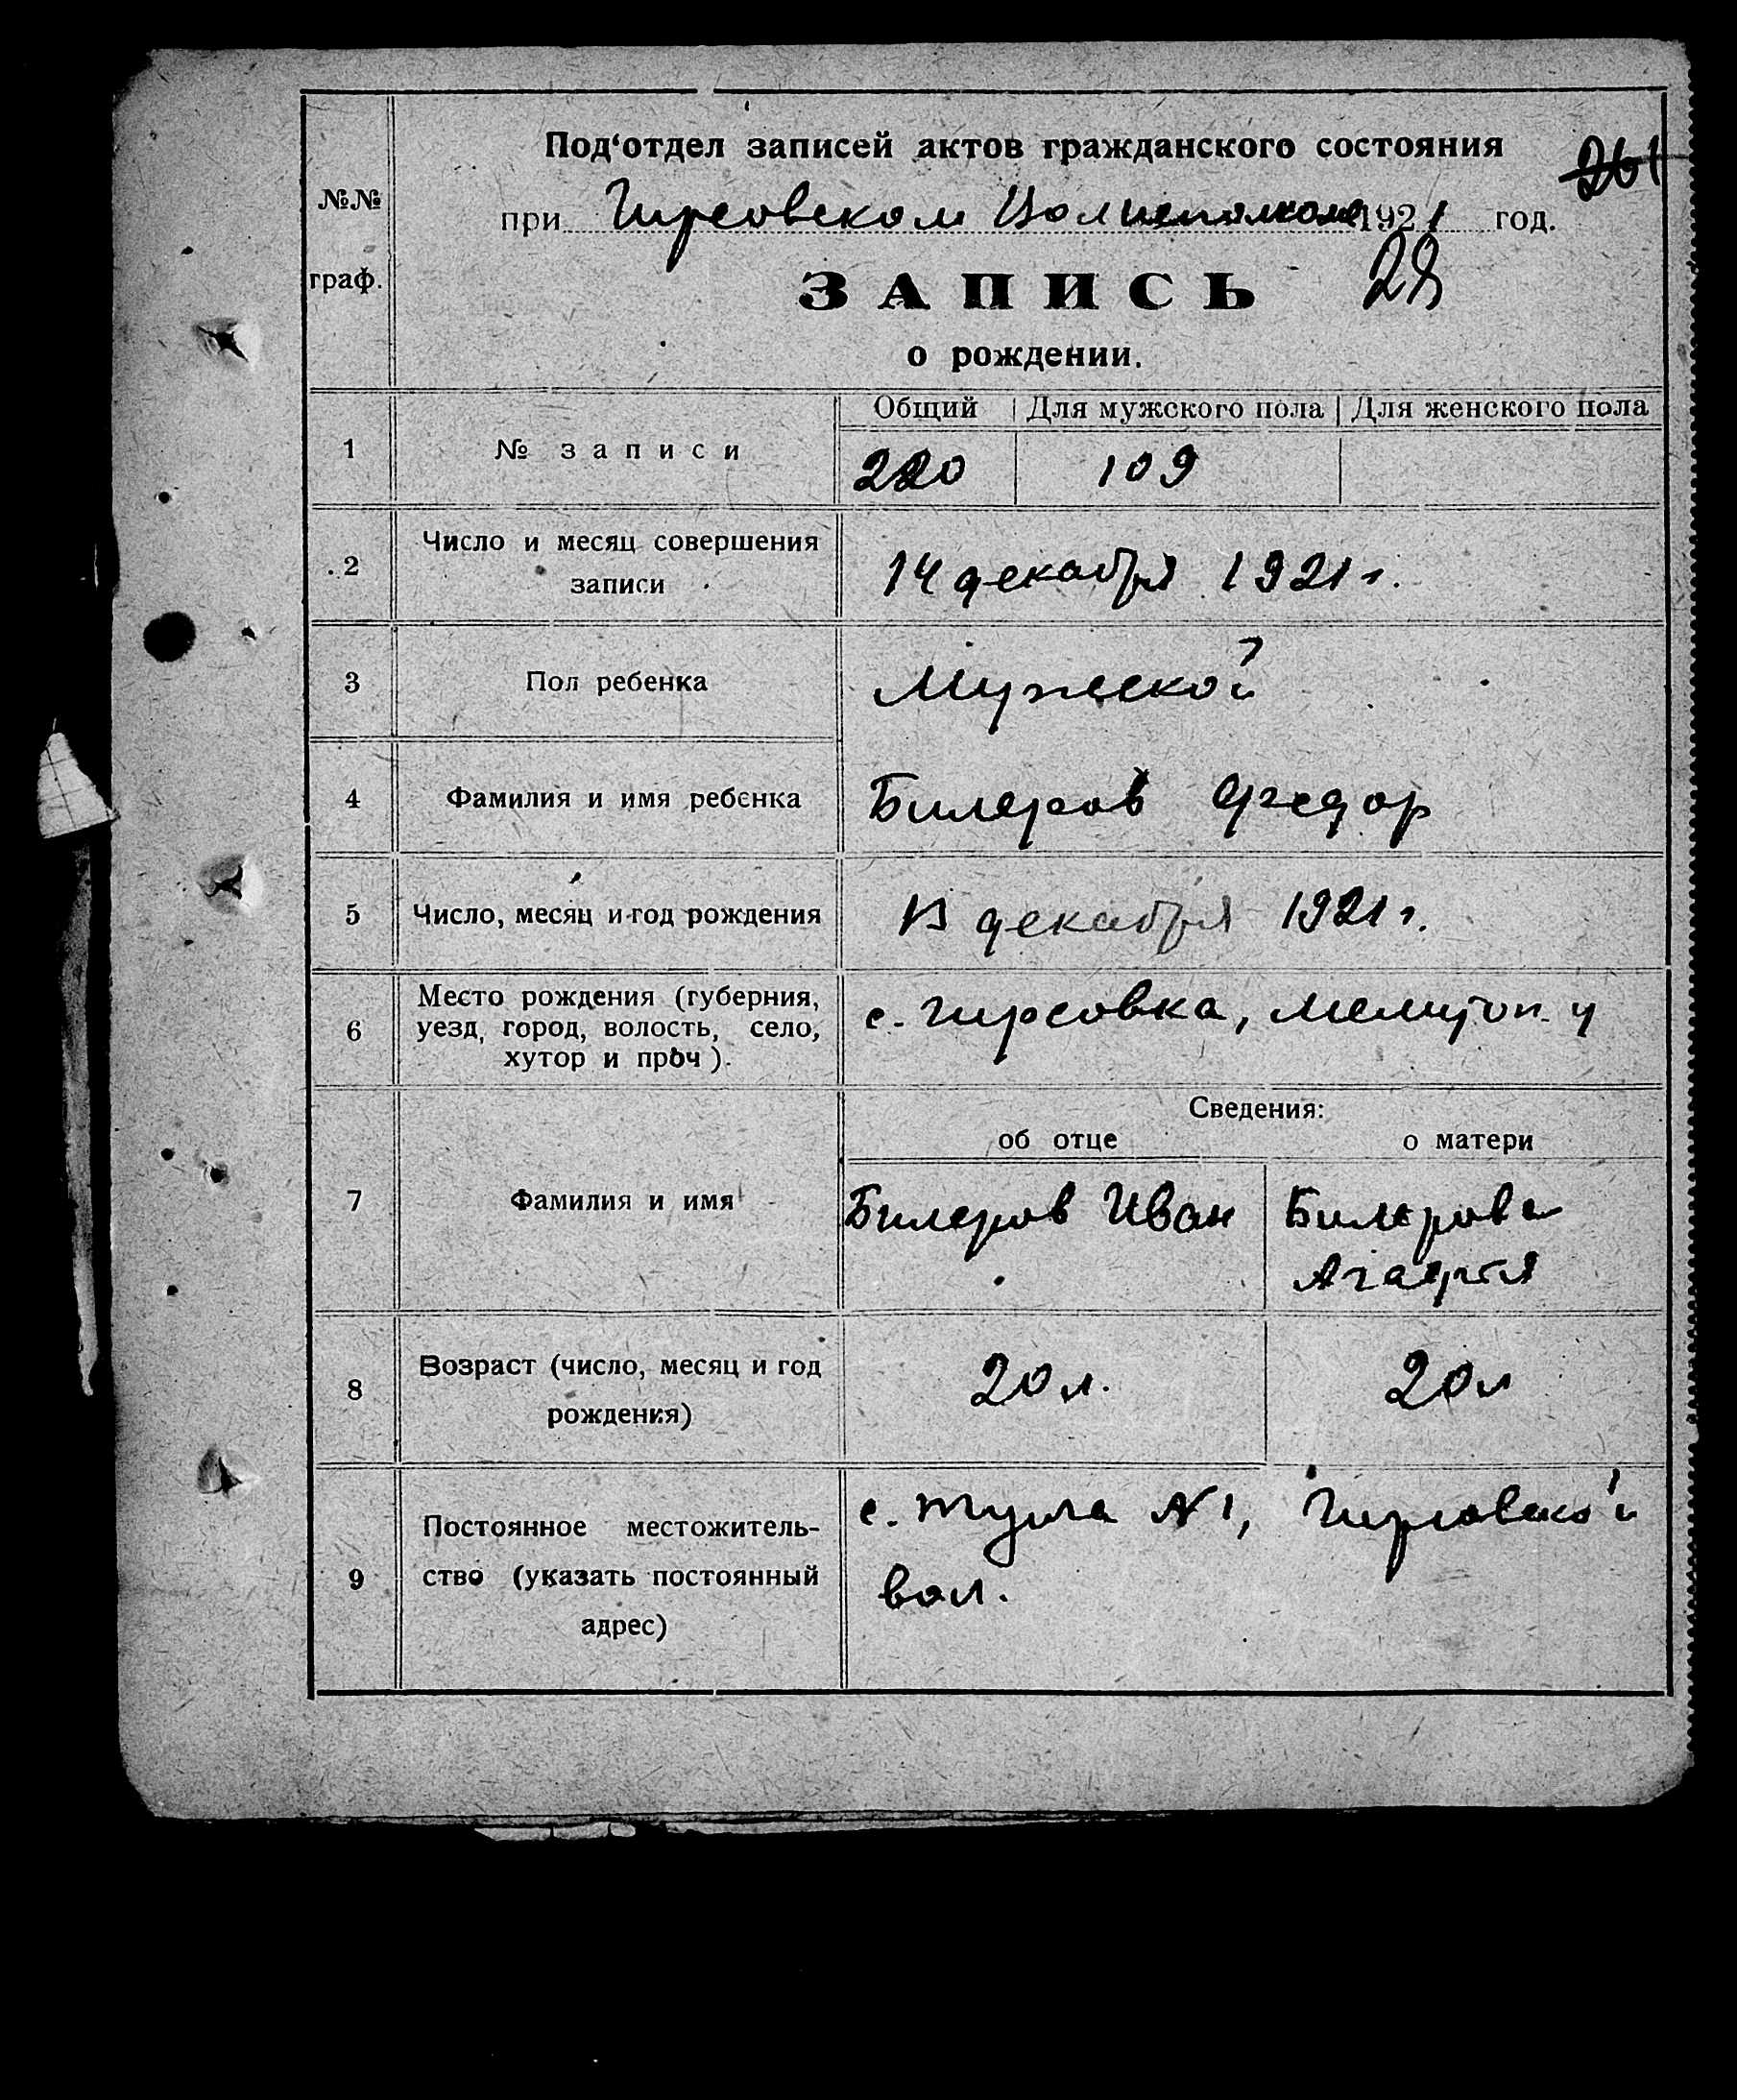 Под‘отдел записей актов гражданского состояния
261
при Гирсовском Волисполкоме 1921 год.
№№
граф.
ЗАПИСЬ 28
о рождении.
Общий Для мужского пола Для женского пола
1 № записи 220 109
2 Число и месяц совершения
записи
14 декабря 1921 г.
3 Пол ребенка Мужской
4 Фамилия и имя ребенка Билеров Федор
5 Число, месяц и год рождения 13 декабря 1921 г.
6 Место рождения (губерния,
уезд, город, волость, село,
хутор и проч).
с. Гирсовка, Мелитоп. у
Сведения:
об отце о матери
7 Фамилия и имя Билеров Иван Билерова
Агафия
8 Возраст (число, месяц и год
рождения)
20 л. 20 л
9 Постоянное местожитель-
ство (указать постоянный
адрес)
с. №1, Гирсовской
вол.